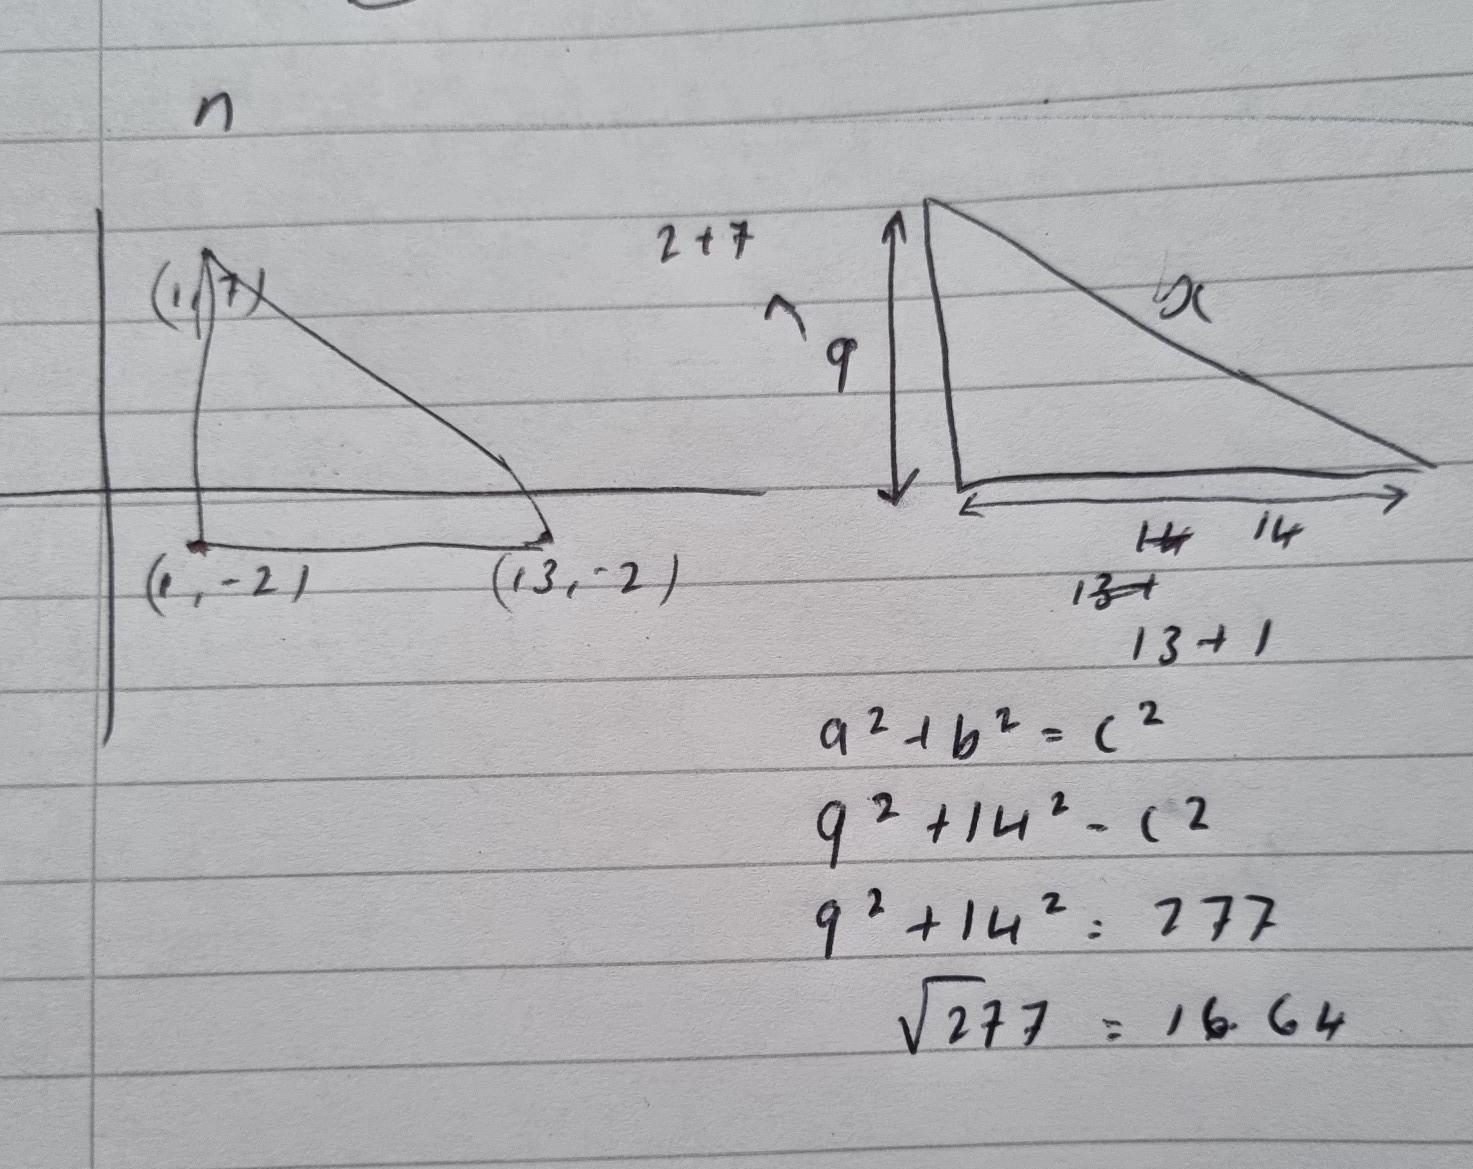 n
(1, 7)
(1, -2)
(13, -2)
2 + 7
9
x
14 14
13+
13 + 1
a² + b² = c²
9² + 14² = c²
9² + 14² = 277
√277 = 16.64